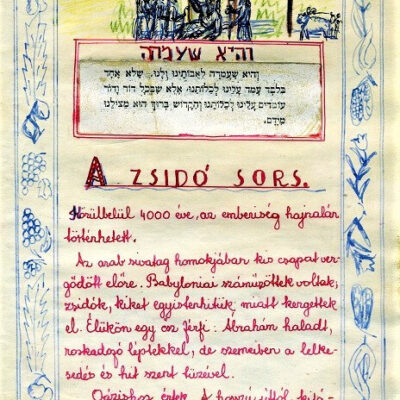 והיא שעמדה
והיא שעמדה לאבותינו ולנו. שלא אחד
בלבד עמד עלינו לכלותנו. אלא שבכל דור ודור
עומדים עלינו לכלותנו והקדוש ברוך הוא מצילנו
מידם.
A ZSIDÓ SORS.
Körülbelül 4000 éve, az emberiség hajnalán
történhetett.
Az arab sivatag homokjában kis csapat ver-
gődött előre. Babyloniai száműzöttek voltak,
zsidók, kiket egyistenhitük miatt kergettek
el. Élükön egy ősz férfi: Ábrahám haladt,
roskadozó léptekkel, de szemeiben a lelke-
sedés és hit szent tüzével.
Oázishoz értek. A hosszú úttól kifá-